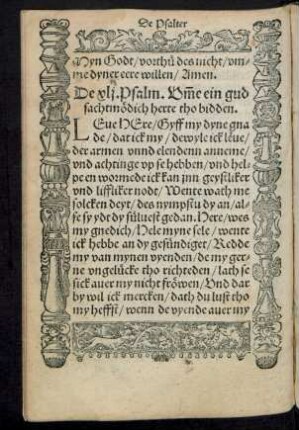 De Psalter
Myn Godt/ vorthü des nicht/ vm-
me dyner eere willen/ Amen.
De xlj. Psalm. Vm̃e ein gud
sachtmödich herte tho bidden.
LEue HEre/ Gyff my dyne gna
de/ dat ick my/ dewyle ick läue/
der armen vnnd elenden anneme/
vnd achtinge vp se hebben/ vnd hel-
pe en wormede ick kan ynn geystliker
vnd liffliker nodt/ Wente wath me
solcken deyt/ des nympstu dy an/ al-
se sy ydt dy süluest gedan. Here/ wes
my gnedich/ Hele myne sele/ wente
ick hebbe an dy gesündiget/ Redde
my van mynen vyenden/ de my ger-
ne vngelücke tho richteden/ lath se
sick auer my nicht fröwen/ Vnd dar
by wil ick mercken/ dath du lust tho
my heffst/ wenn de vyende auer my